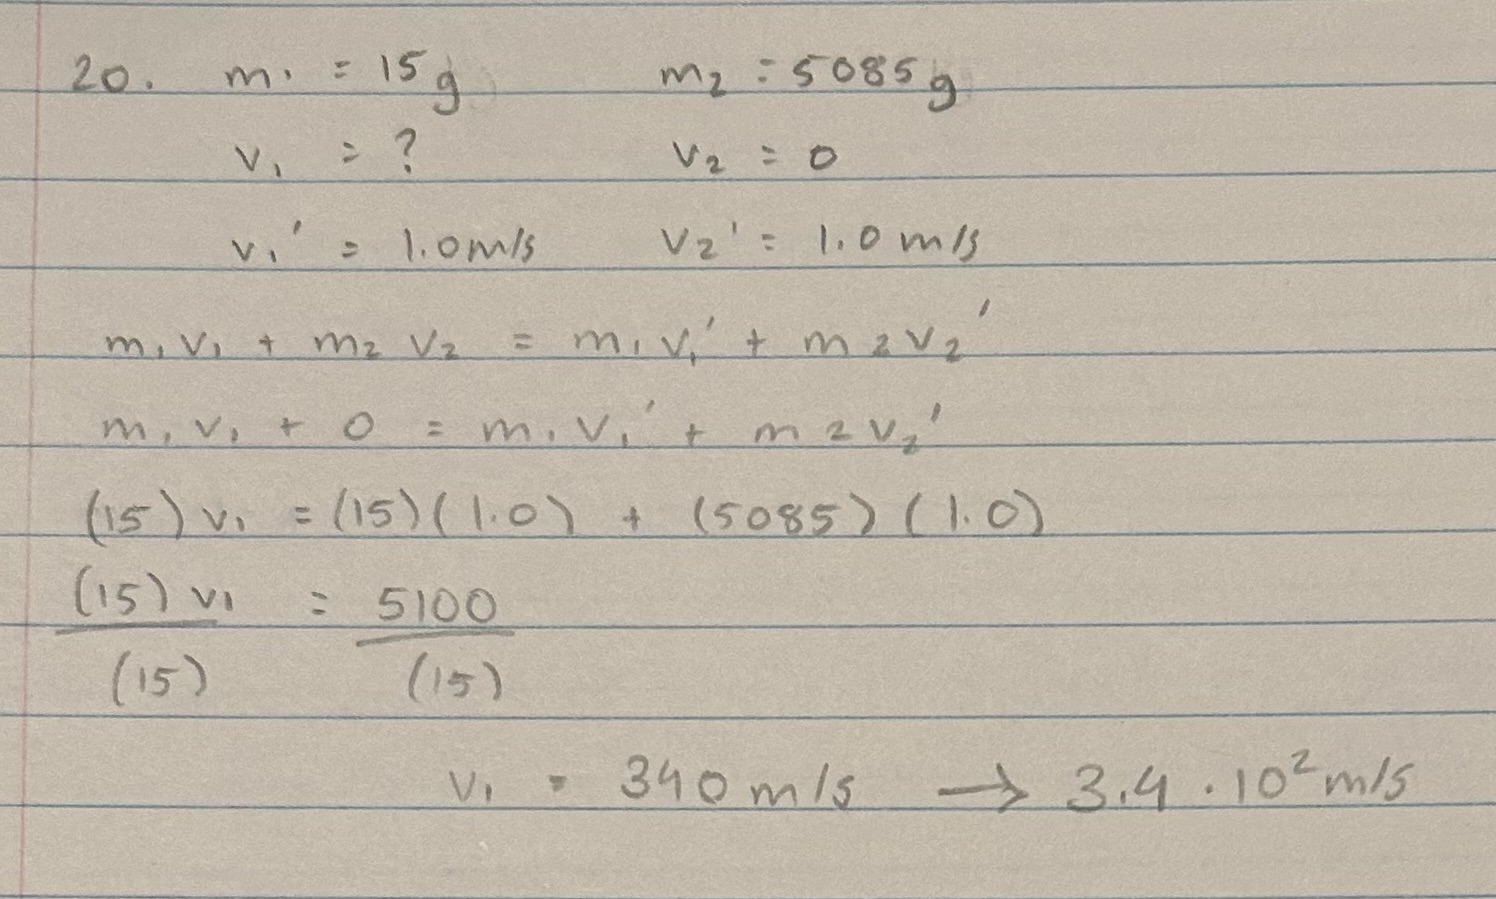 20. m₁ = 15g m₂ = 5085g
v₁ = ? v₂ = 0
v₁' = 1.0m/s v₂' = 1.0 m/s
m₁v₁ + m₂v₂ = m₁v₁' + m₂v₂'
m₁v₁ + 0 = m₁v₁' + m₂v₂'
(15)v₁ = (15)(1.0) + (5085)(1.0)
(15)v₁ = 5100
(15) (15)
v₁ = 340 m/s → 3.4 · 10² m/s